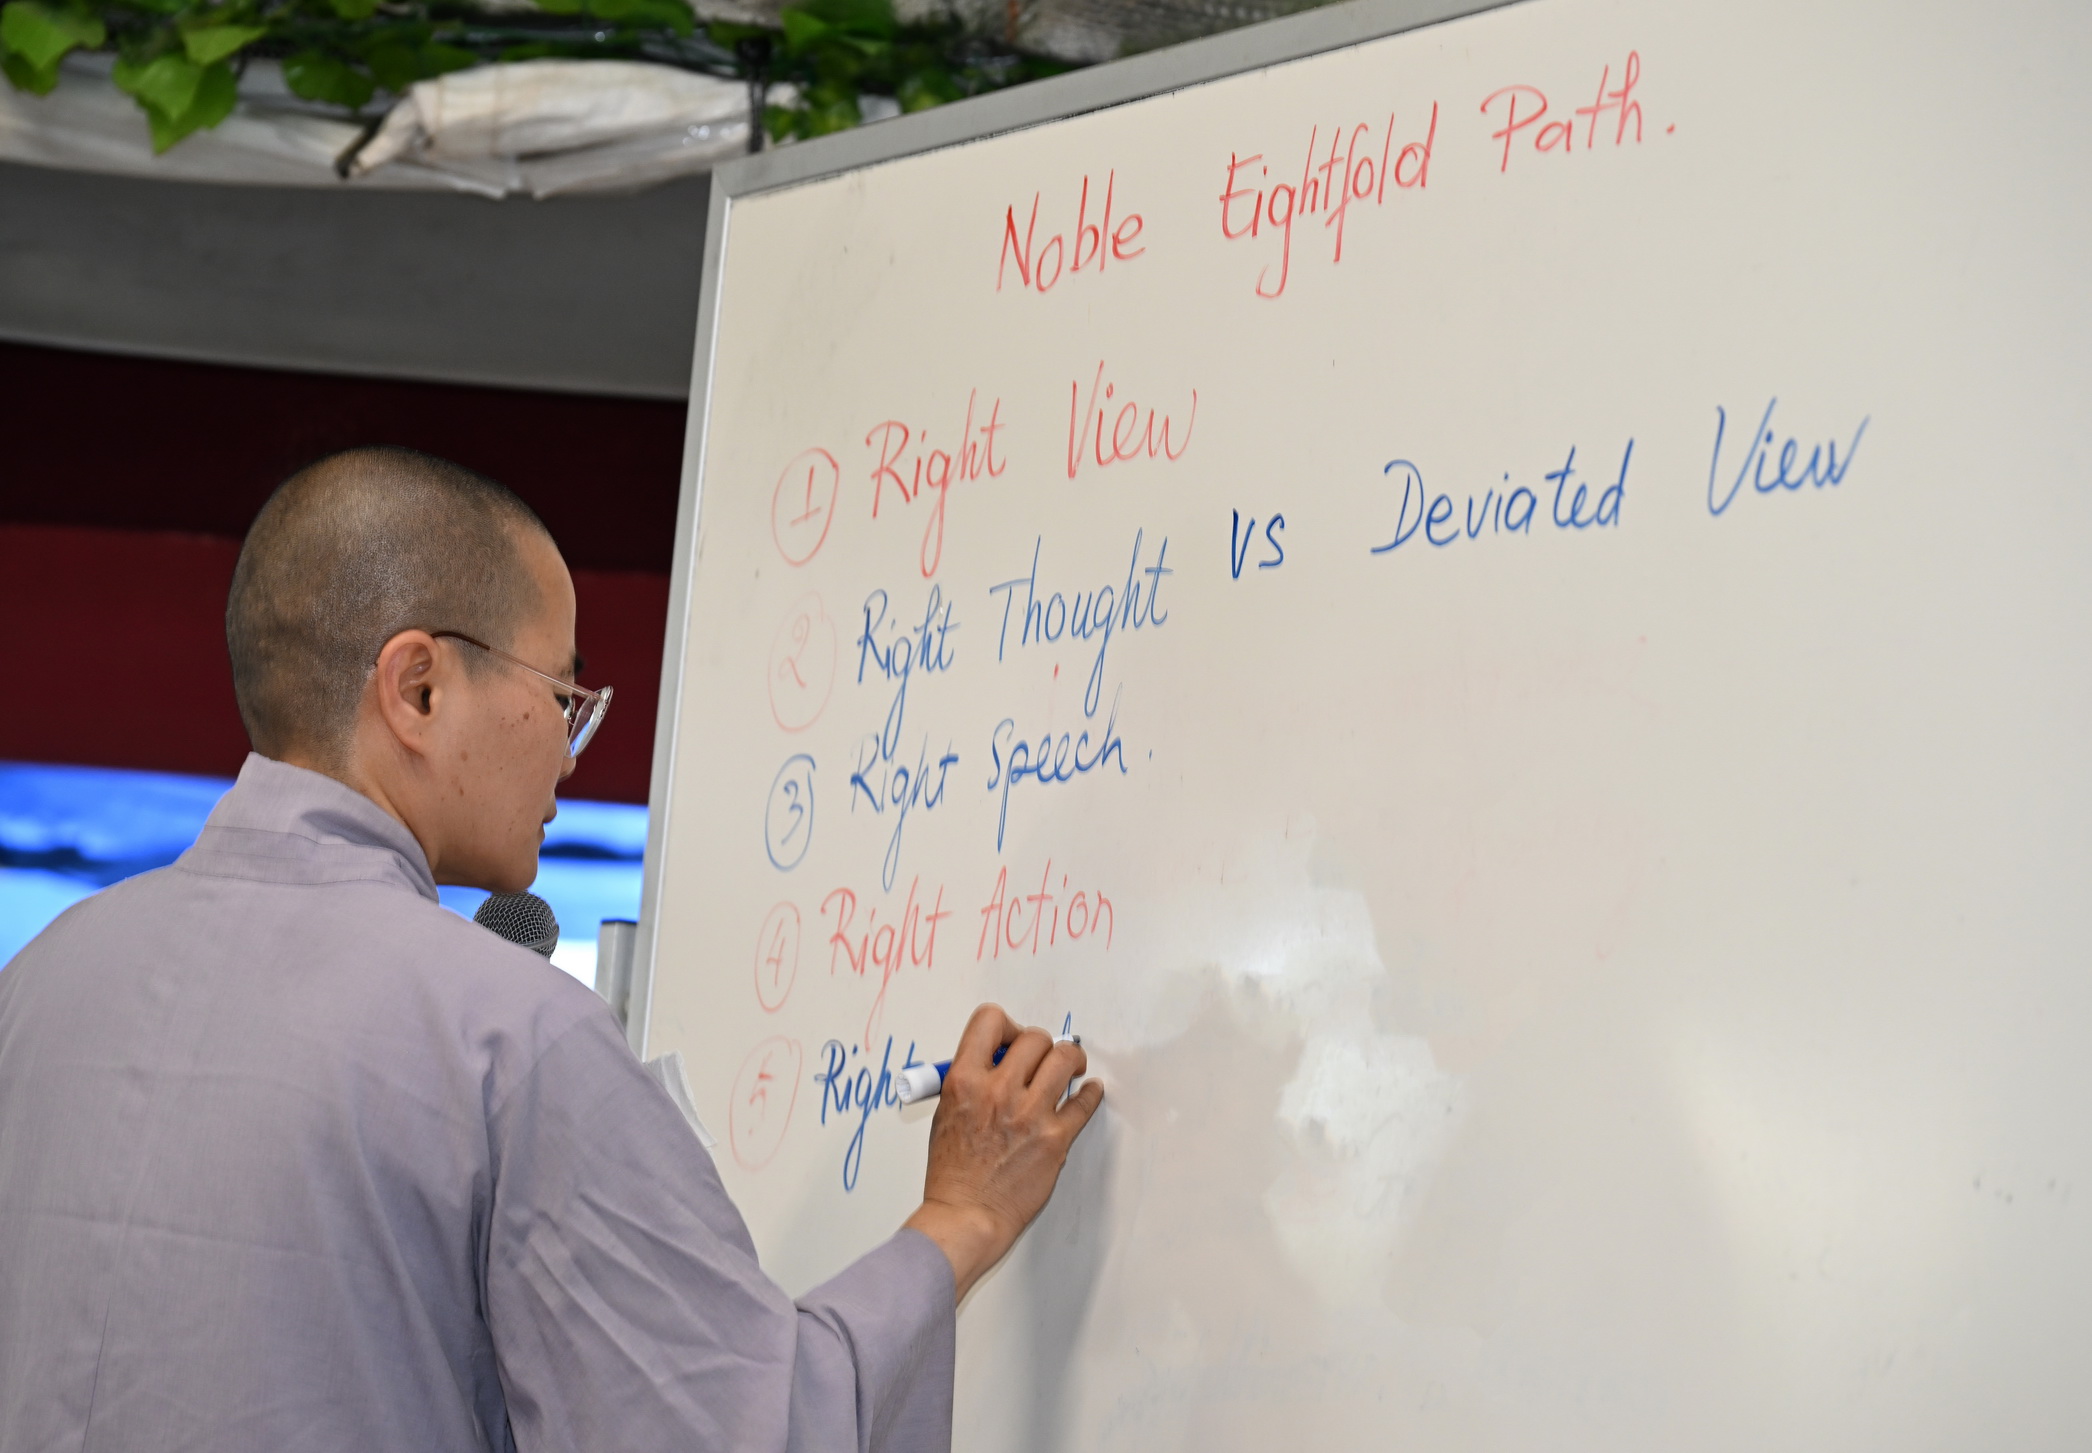 Noble Eightfold Path.
① Right View
vs Deviated View
② Right Thought
③ Right Speech.
④ Right Action
⑤ Right